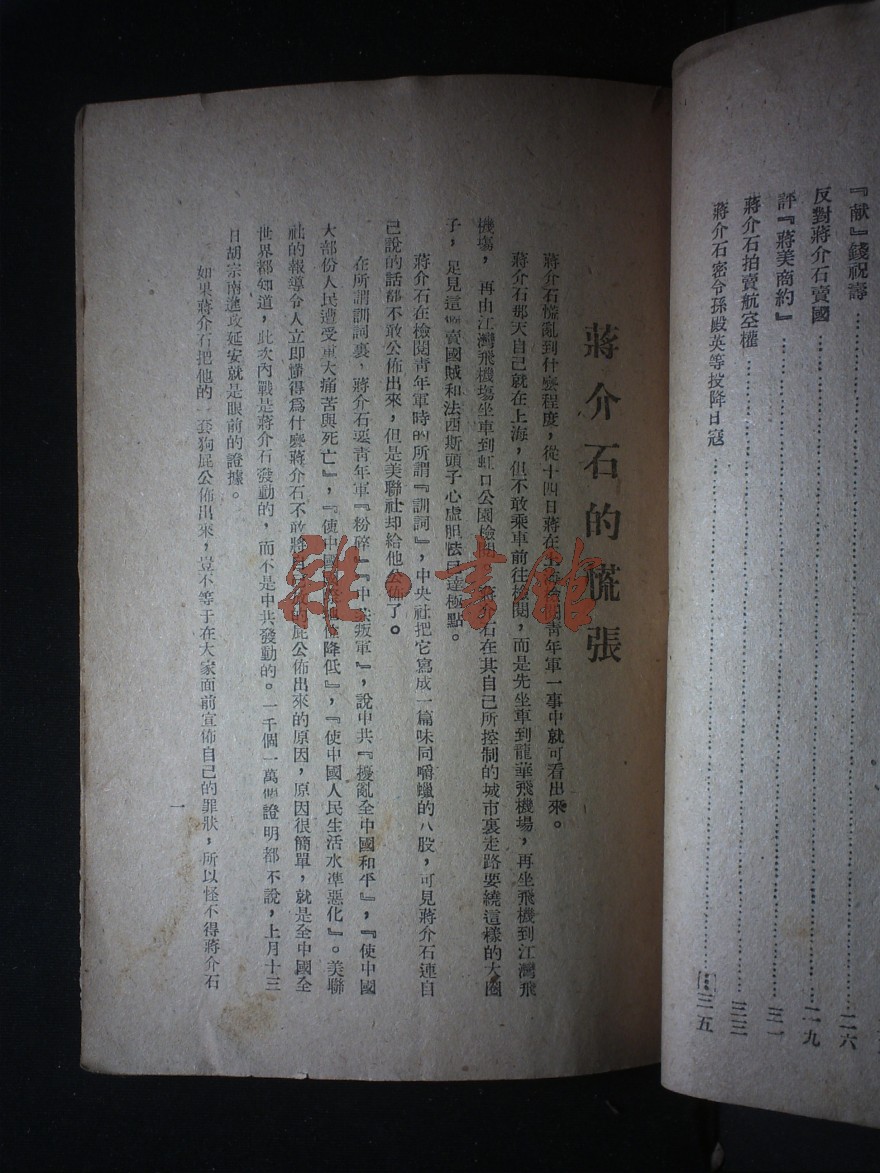 『献』錢祝壽⋯⋯⋯⋯⋯⋯⋯⋯⋯⋯二六
反對蔣介石賣國⋯⋯⋯⋯⋯⋯⋯⋯⋯⋯二九
評『蔣美商約』⋯⋯⋯⋯⋯⋯⋯⋯⋯⋯三一
蔣介石拍賣航空權⋯⋯⋯⋯⋯⋯⋯⋯⋯⋯三三
蔣介石密令孫殿英等投降日寇⋯⋯⋯⋯⋯⋯⋯⋯⋯⋯三五
蔣介石的慌張
蔣介石慌亂到什麼程度，從十四日蔣在上海檢閱青年軍一事中就可看出來。
蔣介石那天自己就在上海，但不敢乘車前往檢閱，而是先坐車到龍華飛機場，再坐飛機到江灣飛
機場，再由江灣飛機場坐車到虹口公園檢閱。蔣介石在其自己所控制的城市裏走路要繞這樣的大圈
子，足見這個賣國賊和法西斯頭子心虛胆怯已達極點。
蔣介石在檢閱青年軍時的所謂『訓詞』，中央社把它寫成一篇味同嚼蠟的八股，可見蔣介石連自
己說的話都不敢公佈出來，但是美聯社却給他公佈了。
在所謂訓詞裏，蔣介石要青年軍『粉碎』『中共叛軍』，說中共『擾亂全中國和平』，『使中國
大部份人民遭受重大痛苦與死亡』，『使中國降低』，『使中國人民生活水準惡化』。美聯
社的報導令人立即懂得爲什麼蔣介石不敢將屁公佈出來的原因，原因很簡單，就是全中國全
世界都知道，此次內戰是蔣介石發動的，而不是中共發動的。一千個一萬個證明都不說，上月十三
日胡宗南進攻延安就是眼前的證據。
如果蔣介石把他的一套狗屁公佈出來，豈不等于在大家面前宣佈自己的罪狀，所以怪不得蔣介石
一
雜·書館